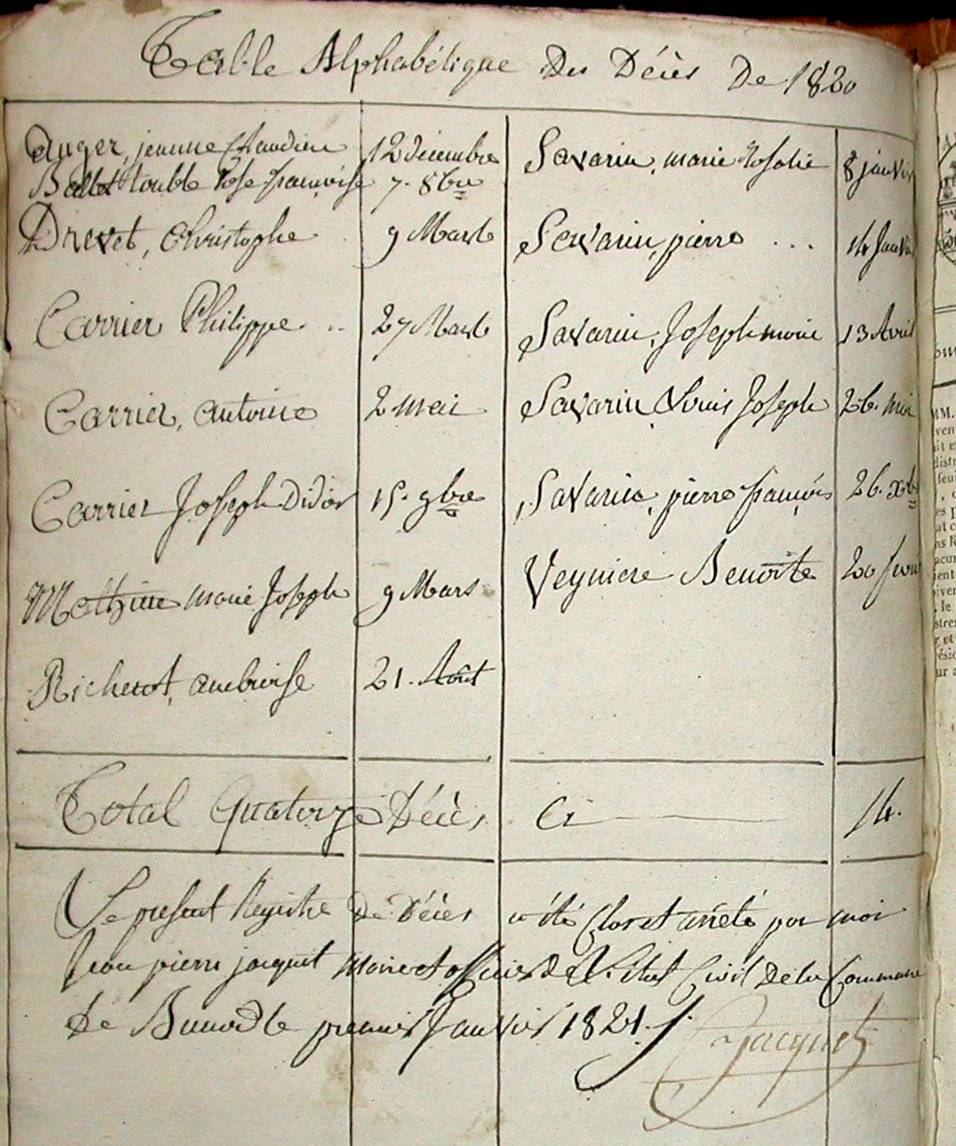 Table Alphabétique Des Décès De 1820
Auger, jeanne Claudine 12 décembre
Ballet Rose françoise 7. 8bre
Drevet, Christophe 9 Mars
Carrier Philippe .. 27 Mars
Carrier, antoine 2 mai
Carrier Joseph Didier 15. 9bre
marie Joseph 9 Mars
Richerot, ambroise 21. Août
Savarin, marie Rosalie 8 janvier
Savarin, pierre ... 14 Janvier
Savarin, Joseph marie 13 Avril
Savarin Louis Joseph 26. mai
Savarin, pierre françois 26. Xbre
Veyniere Benoîte 20
Total Quatorze Décès Ci 14.
Le present Registre De Décès a été Clos et arrêté par moi
Jean pierre jacquet Maire et officier de L'Etat Civil De la Commune
De le premier Janvier 1821.
Jacquet